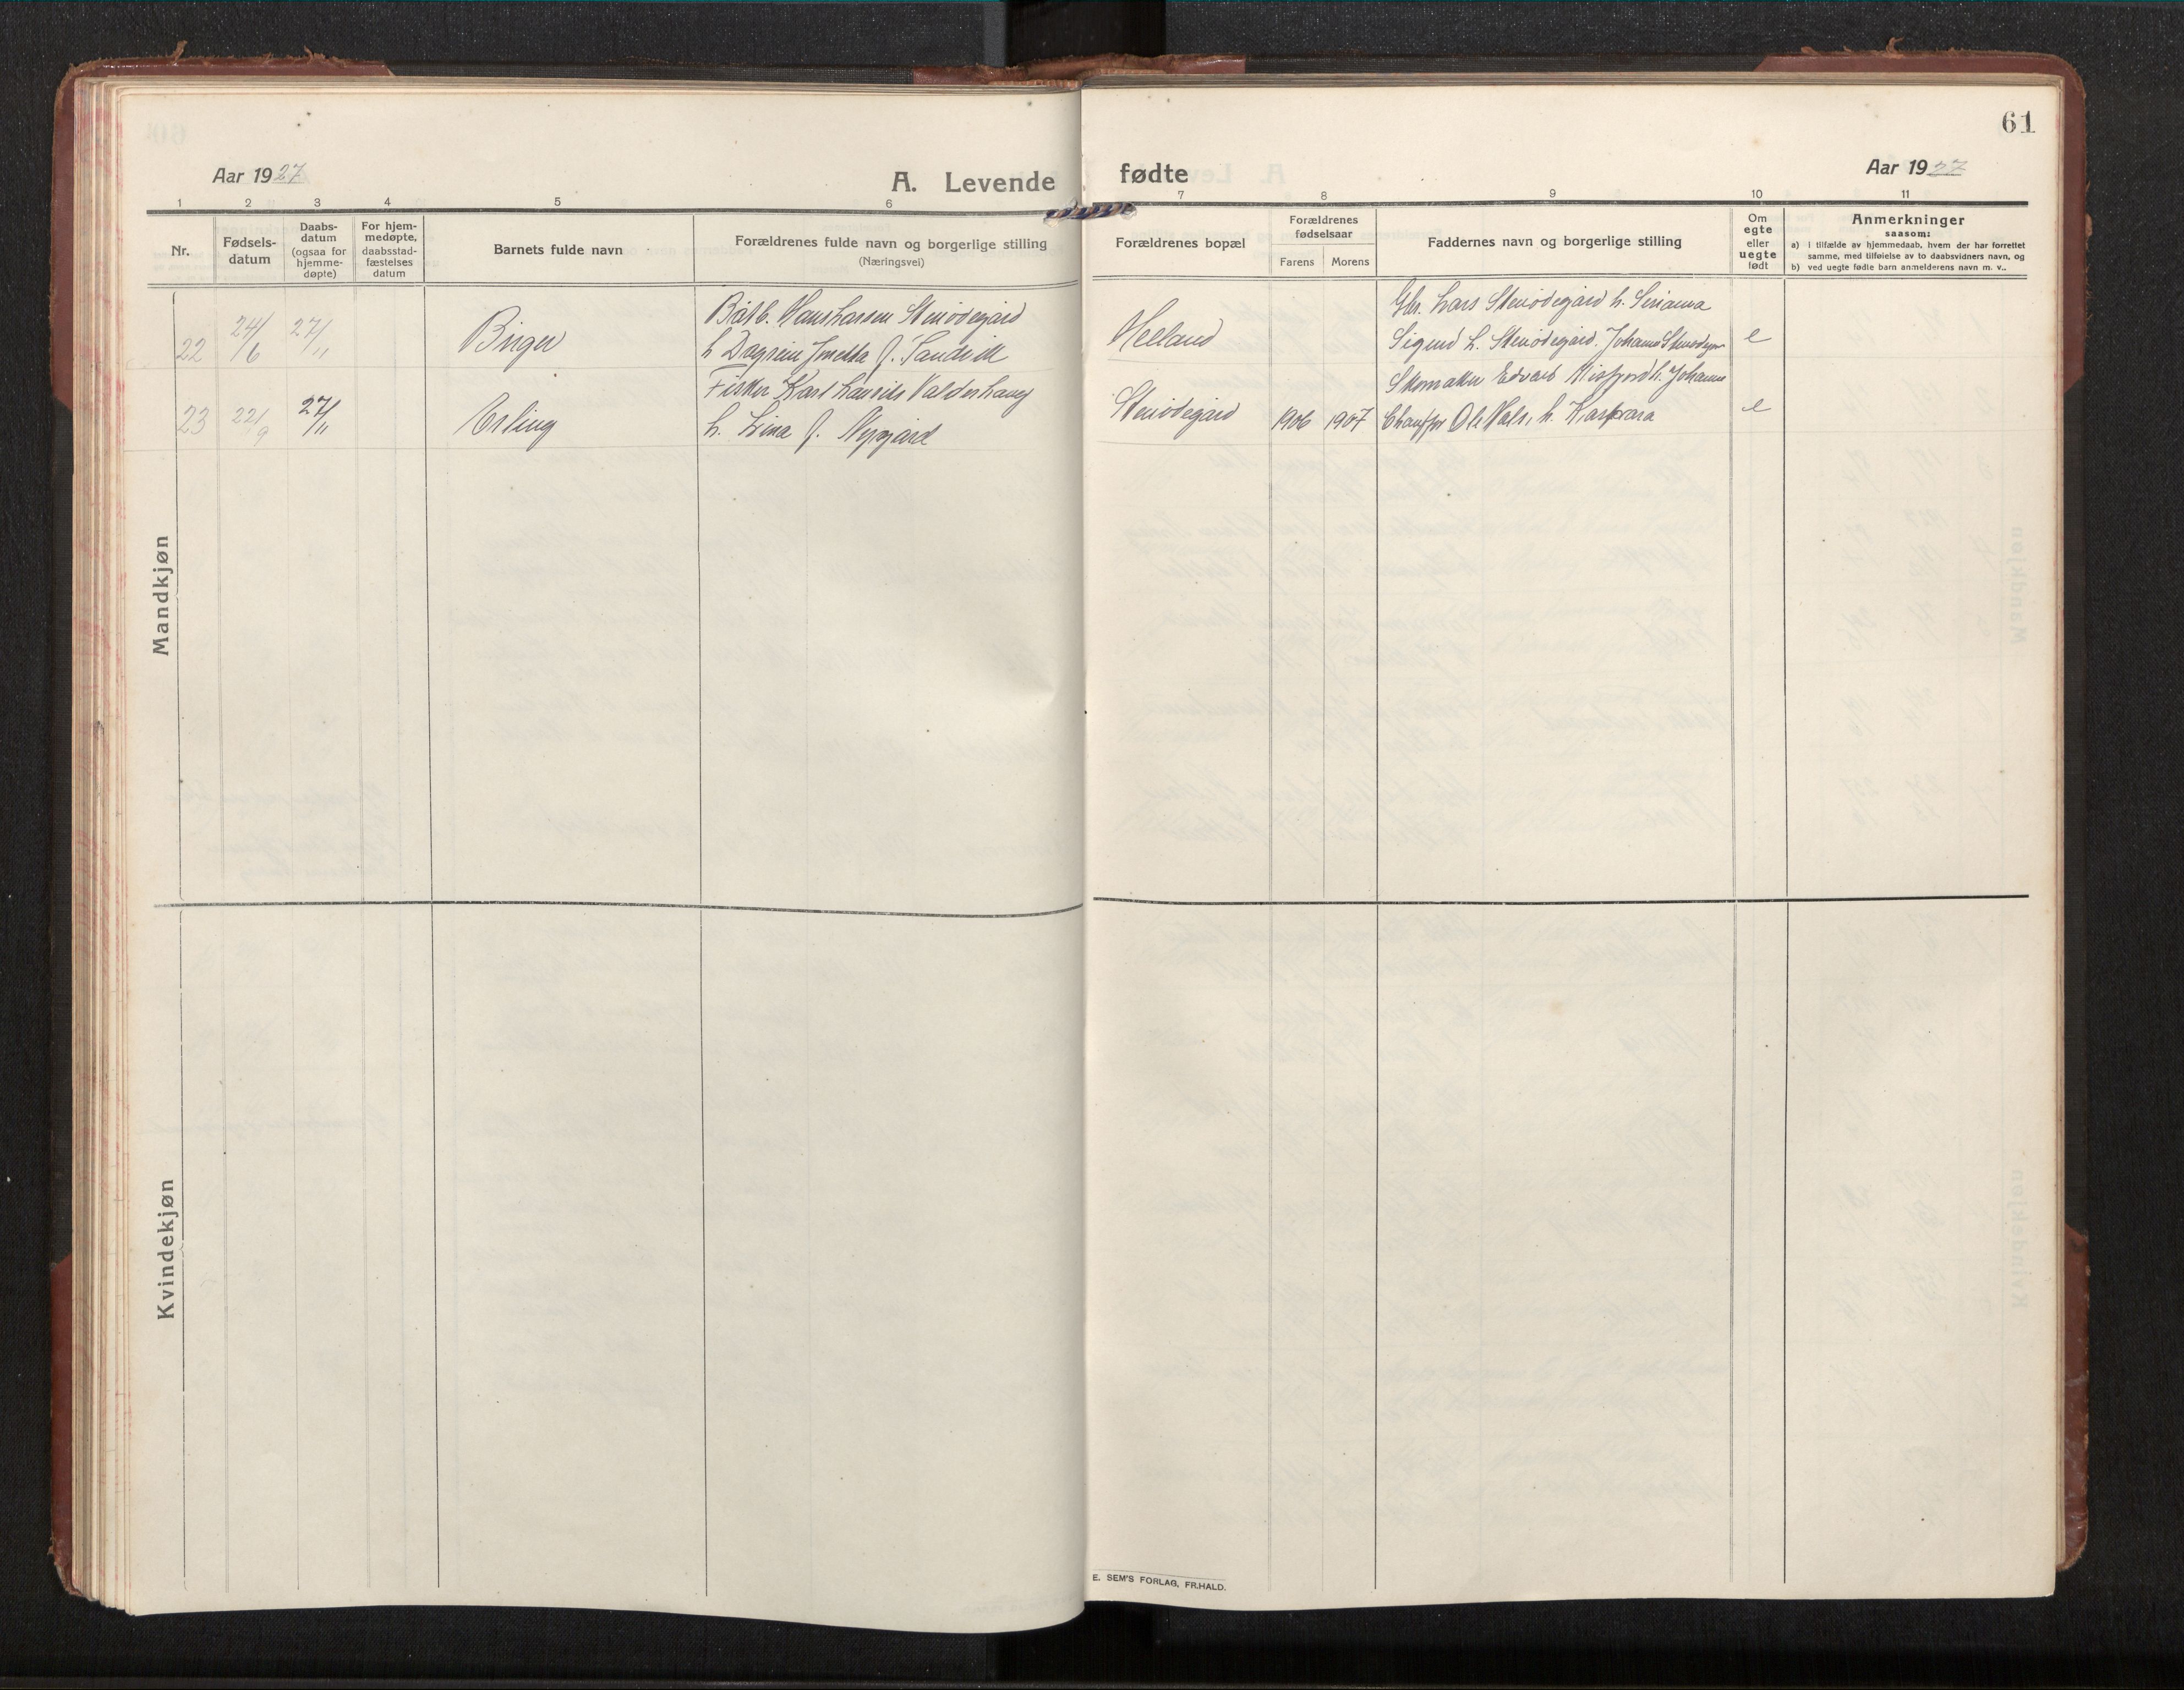 61
Aar 1927
A. Levende
fødte
Aar 1927
1 2 3 4 5 6 7 8 9 10 11
Nr.
Fødsels-
datum
Daabs-
datum
(ogsaa for
hjemme-
døpte)
For hjem-
medøpte,
daabsstad-
fæstelses
datum
Barnets fulde navn
Forældrenes fulde navn og borgerlige stilling
(Næringsvei)
Forældrenes bopæl
Forældrenes
fødselsaar
Farens Morens
Faddernes navn og borgerlige stilling
Om
egte
eller
uegte
født
Anmerkninger
saasom:
a) i tilfælde av hjemmedaab, hvem der har forrettet
samme, med tilføielse av to daabsvidners navn, og
b) ved uegte fødte barn anmelderens navn m. v..
Mandkjøn
22 24/6 27/11 Birger
Båtb. Hans Larsen Stenødegård
h. Sandvik
Helland
Gbr. Lars Stenødegård h. Serianna
Sigurd L. Stenødegård. Johanne
e
23 22/9 27/11 Erling
Fisker Karl Laurits Valderhaug
h. Lina f. Nygård
Stenødegård
1906 1907
Skomaker Edvard h. Johanne
Chauffør Ole h. Kaspara
e
Kvindekjøn
E. SEM'S FORLAG, FR.HALD.